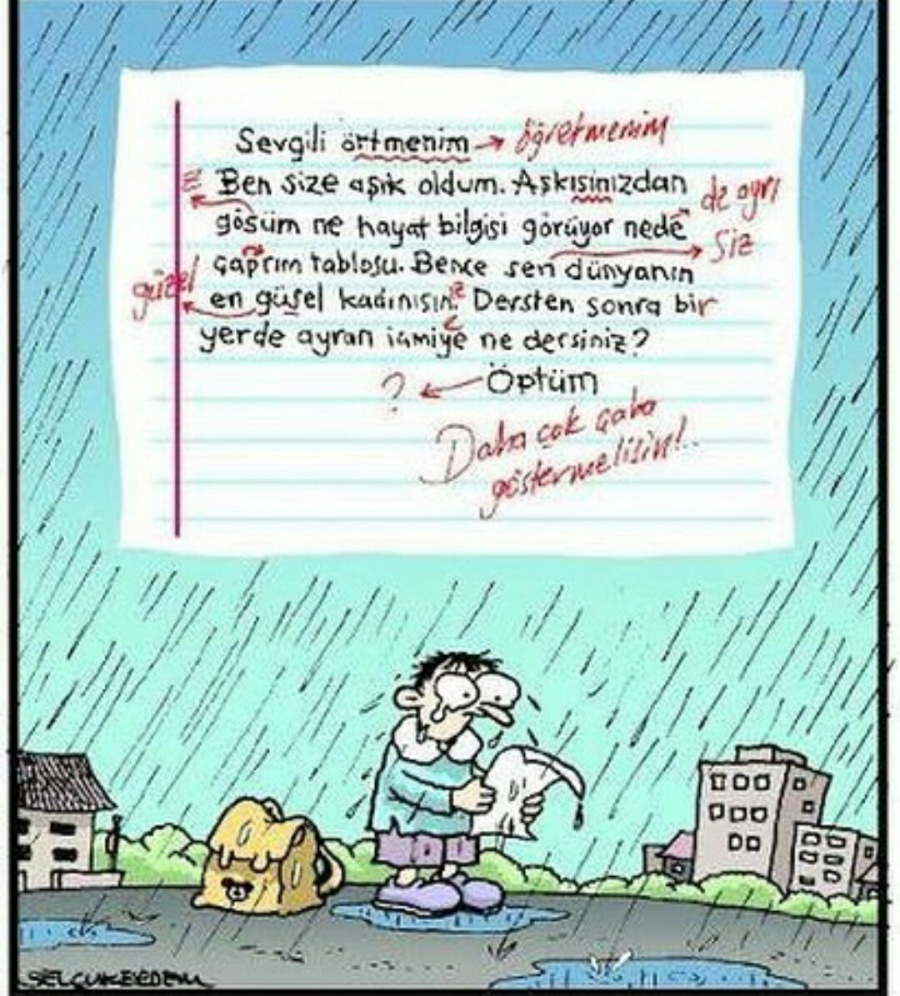 Sevgili örtmenim → öğretmenim
z Ben size aşık oldum. Aşkısinızdan
de ayrı
gösüm ne hayat bilgisi görüyor nede
siz
çaprım tablosu. Bence sen dünyanın
güzel
en güsel kadınısın. Dersten sonra bir
z
yerde ayran içmiye ne dersiniz?
e
? ← Öptüm
Daha çok çaba
göstermelisin!..
SELÇUK ERDEM